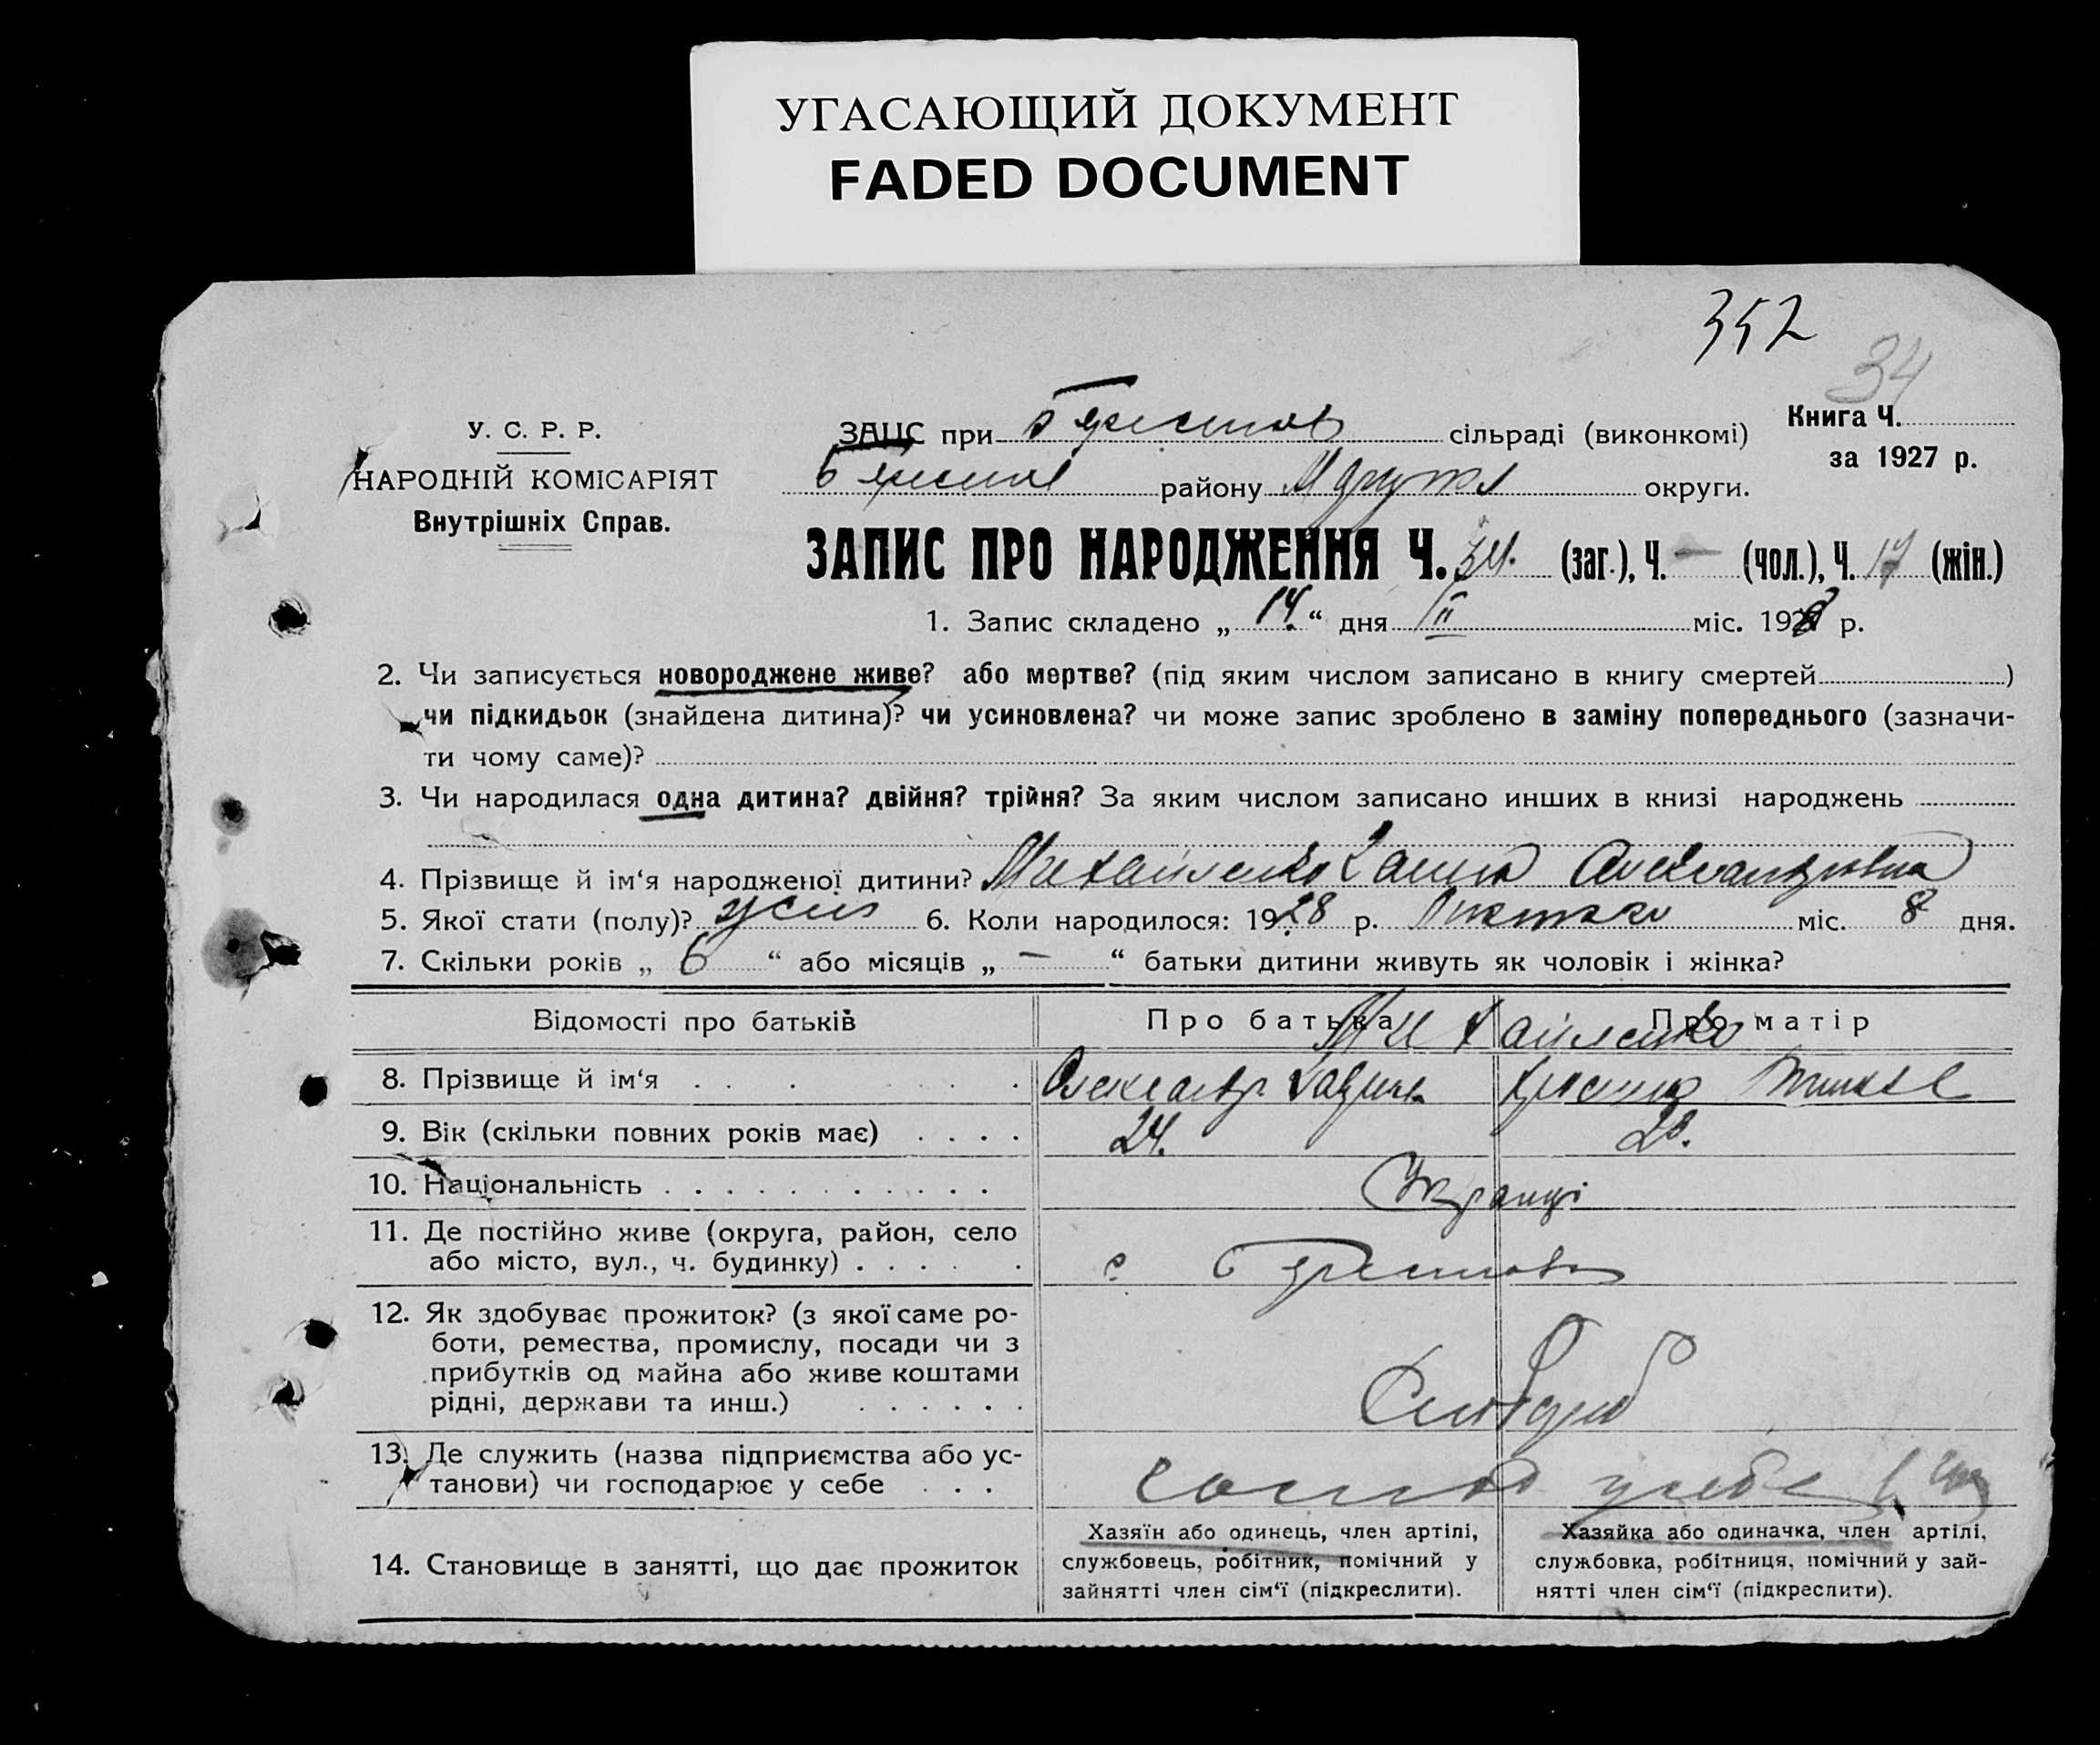 УГАСАЮЩИЙ ДОКУМЕНТ
FADED DOCUMENT
352
34
У. С. Р. Р.
НАРОДНІЙ КОМІСАРІЯТ
Внутрішніх Справ.
ЗАЦС при сільраді (виконкомі)
району округи.
Книга Ч.
за 1927 р.
ЗАПИС ПРО НАРОДЖЕННЯ Ч. 34. (заг.), Ч. — (чол.), Ч. 17 (жін.)
1. Запис складено „ 14. “ дня II міс. 1928 р.
2. Чи записується новороджене живе? або мертве? (під яким числом записано в книгу смертей )
чи підкидьок (знайдена дитина)? чи усиновлена? чи може запис зроблено в заміну попереднього (зазначи-
ти чому саме)?
3. Чи народилася одна дитина? двійня? трійня? За яким числом записано инших в книзі народжень
4. Прізвище й ім‘я народженої дитини? Михайленко Александровна
5. Якої стати (полу)? жін 6. Коли народилося: 1928 р. міс. 8 дня.
7. Скільки років „ 6 “ або місяців „ — “ батьки дитини живуть як чоловік і жінка?
Відомості про батьків Про батька Про матір
Михайленко
8. Прізвище й ім‘я . . . . . . Олександр
9. Вік (скільки повних років має) . . . . 24. 23.
10. Національність . . . . . . . . . . . Украінці
11. Де постійно живе (округа, район, село
або місто, вул., ч. будинку) . . . . . . с.
12. Як здобуває прожиток? (з якої саме ро-
боти, ремества, промислу, посади чи з
прибутків од майна або живе коштами
рідні, держави та инш.) . . . . . .
13. Де служить (назва підприємства або ус-
танови) чи господарює у себе . . . у себе
14. Становище в занятті, що дає прожиток
Хазяїн або одинець, член артілі,
службовець, робітник, помічний у
зайнятті член сім‘ї (підкреслити).
Хазяйка або одиначка, член артілі,
службовка, робітниця, помічний у зай-
нятті член сім‘ї (підкреслити).